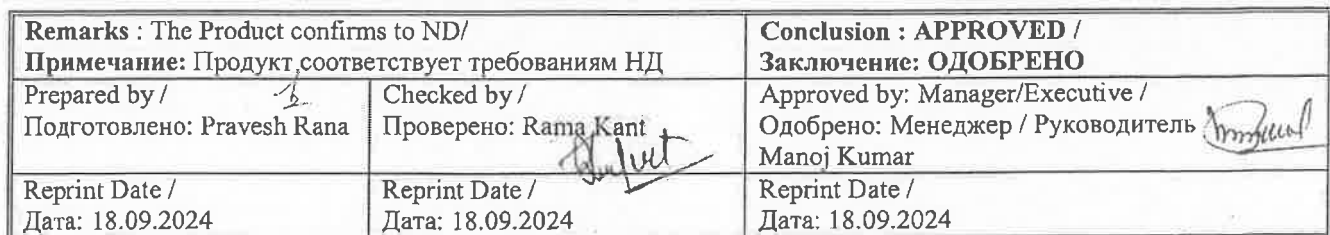 Remarks : The Product confirms to ND/
Примечание: Продукт соответствует требованиям НД
Conclusion : APPROVED /
Заключение: ОДОБРЕНО
Prepared by /
Подготовлено: Pravesh Rana
Checked by /
Проверено: Rama Kant
Approved by: Manager/Executive /
Одобрено: Менеджер / Руководитель
Manoj Kumar
Reprint Date /
Дата: 18.09.2024
Reprint Date /
Дата: 18.09.2024
Reprint Date /
Дата: 18.09.2024